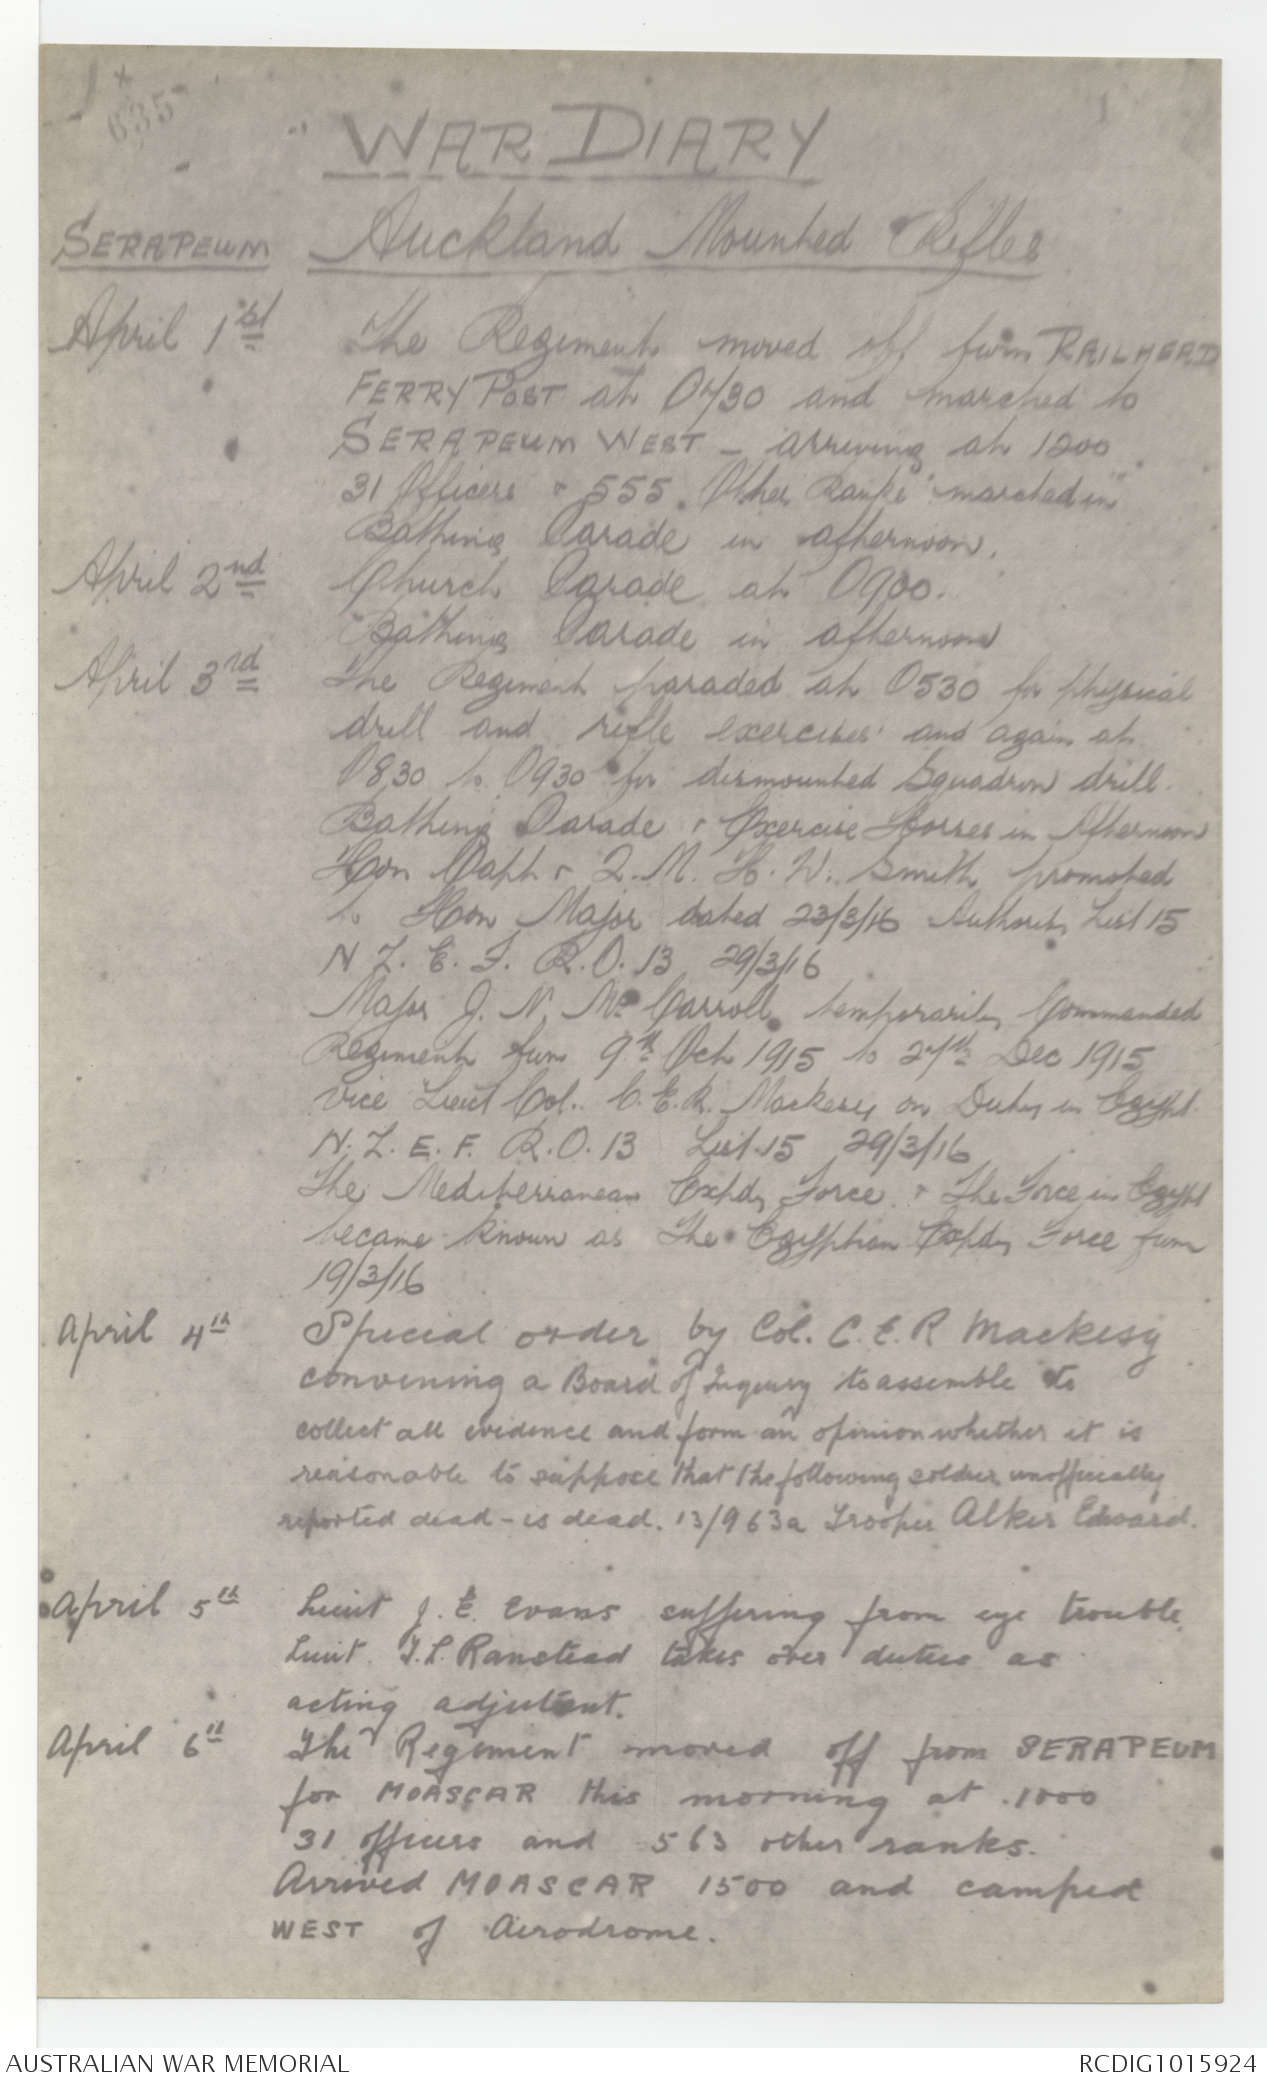 635
WAR DIARY
SERAPEUM Auckland Mounted Rifles
April 1st The Regiment moved off from RAILHEAD
FERRY POST at 0730 and marched to
SERAPEUM WEST - arriving at 1200
31 Officers & 555 Other Ranks marched in
Bathing Parade in afternoon.
April 2nd Church Parade at 0900.
Bathing Parade in afternoon
April 3rd The Regiment paraded at 0530 for physical
drill and rifle exercises and again at
0830 to 0930 for dismounted Squadron drill.
Bathing Parade & Exercise Horses in Afternoon
Hon Capt & Q.M. H.W. Smith promoted
to Hon Major dated 23/3/16 Authority List 15
N Z. E. F. R.O. 13 29/3/16
Major J. N. McCarroll temporarily Commanded
Regiment from 9th Oct 1915 to 27th Dec 1915
vice Lieut Col. C.E.R. Mackesy on Duty in Egypt.
N. Z. E. F. R.O. 13 List 15 29/3/16
The Mediterranean Expdy Force & The Force in Egypt
became known as The Egyptian Expdy Force from
19/3/16
April 4th Special order by Col. C. E. R Mackesy
convening a Board of Inquiry to assemble to
collect all evidence and form an opinion whether it is
reasonable to suppose that the following soldier unofficially
reported dead - is dead. 13/963a Trooper Alker Edward.
April 5th Lieut J. E. Evans suffering from eye trouble.
Lieut. T.L. Ranstead takes over duties as
acting adjutant.
April 6th The Regiment moved off from SERAPEUM
for MOASCAR this morning at .1000
31 officers and 563 other ranks.
Arrived MOASCAR 1500 and camped
WEST of Aerodrome.
AUSTRALIAN WAR MEMORIAL RCDIG1015924